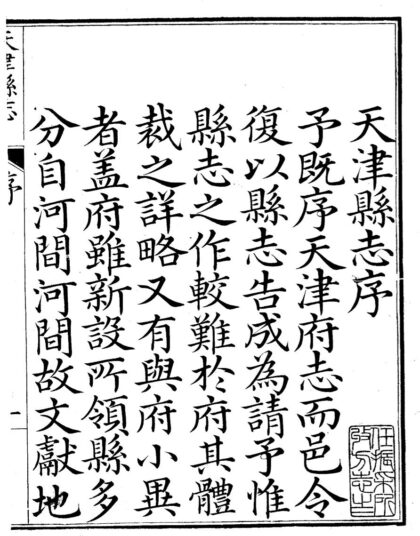 天津縣志序
予既序天津府志而邑令
復以縣志告成為請予惟
縣志之作較難於府其體
裁之詳略又有與府小異
者蓋府雖新設所領縣多
分自河間河間故文獻地
天津縣志
序
一